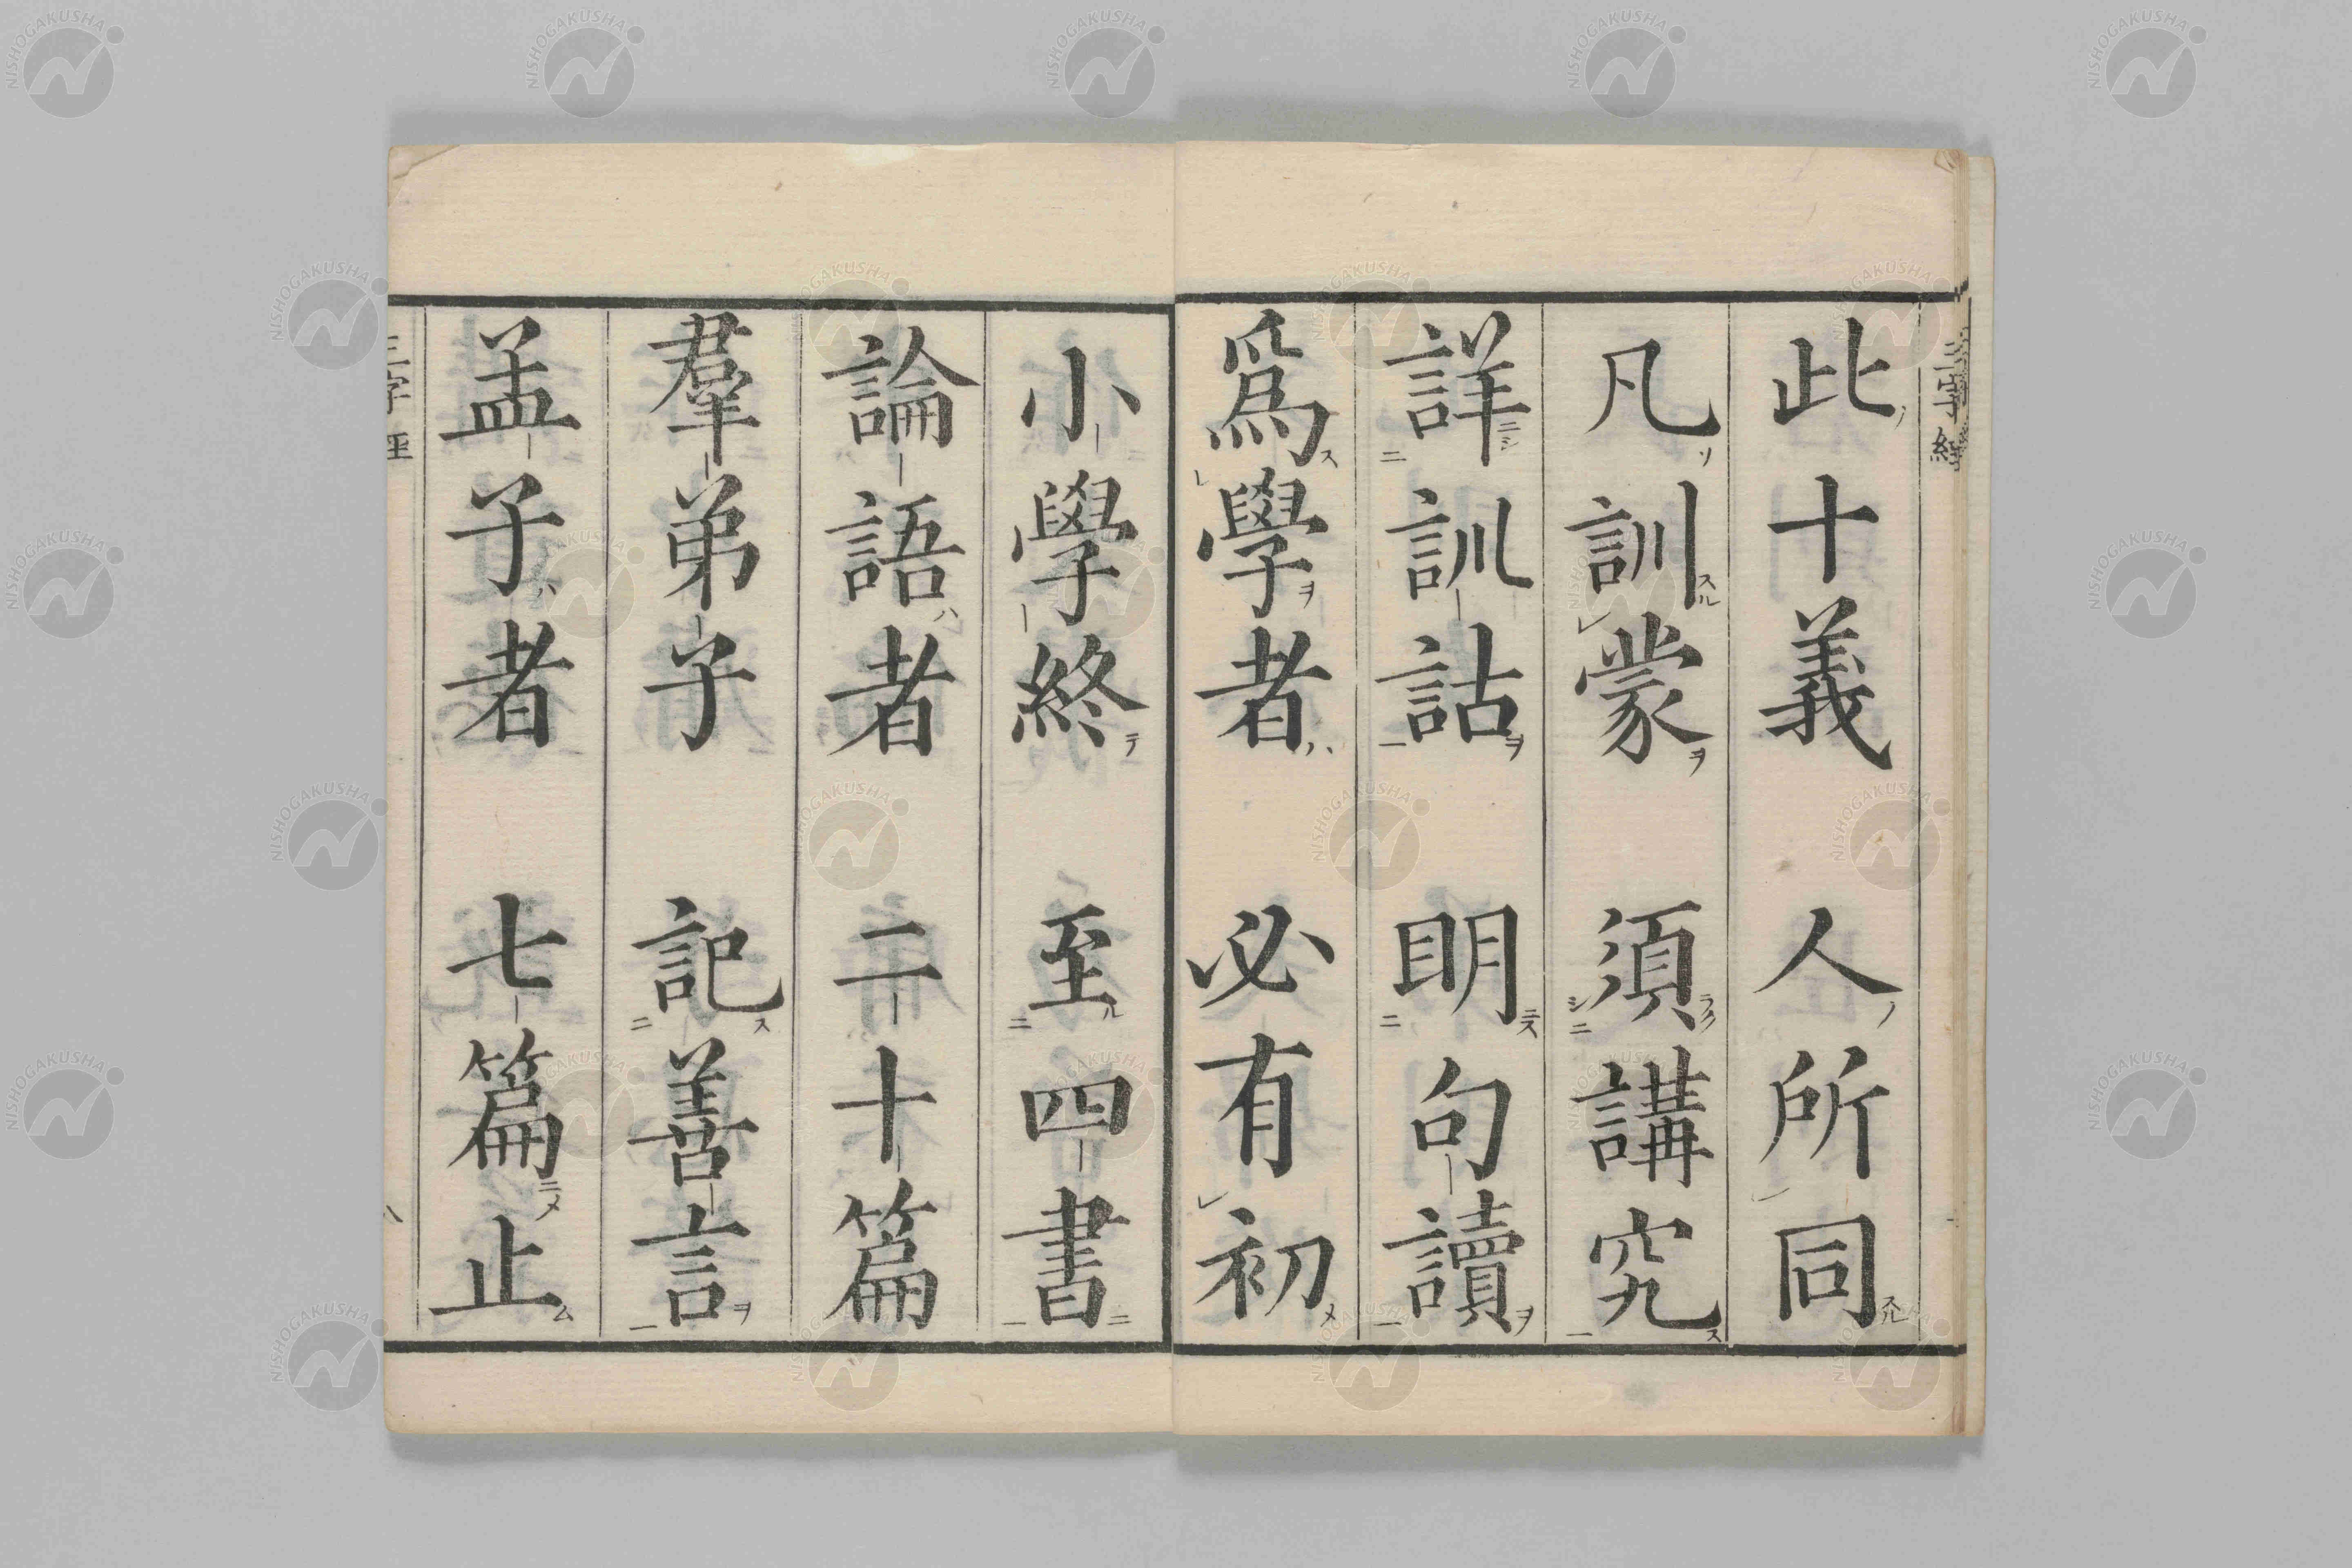 三字經
此十義 人所同
凡訓蒙 須講究
詳訓詁 明句讀
爲學者 必有初
小學終 至四書
論語者 二十篇
羣弟子 記善言
孟子者 七篇止
三字經